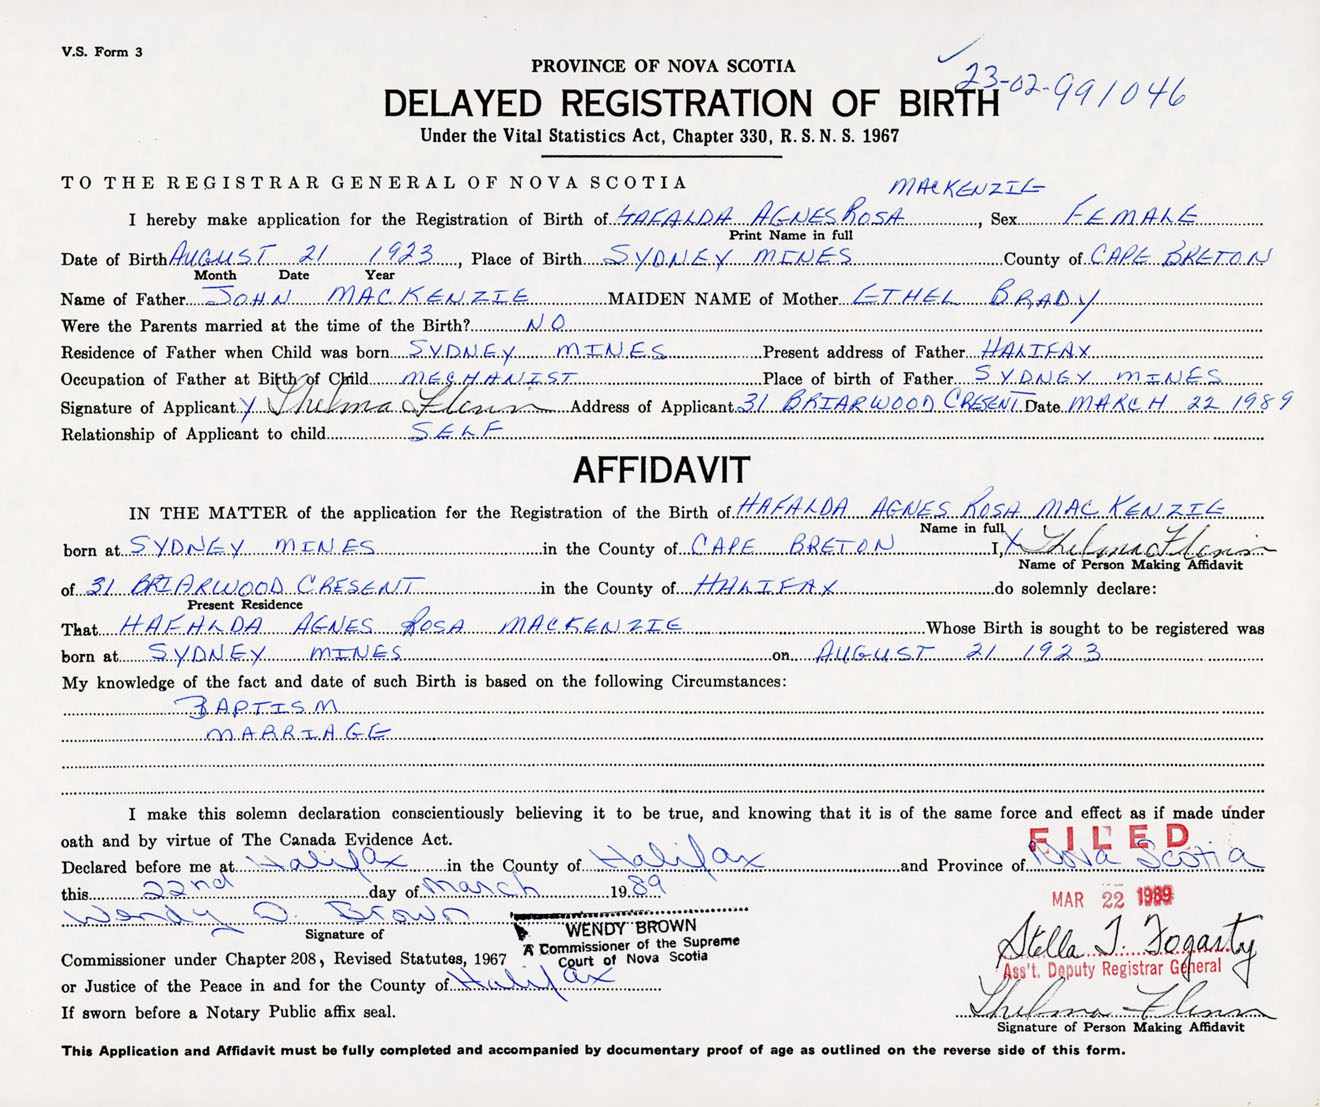 V.S. Form 3
PROVINCE OF NOVA SCOTIA
23-02-991046
DELAYED REGISTRATION OF BIRTH
Under the Vital Statistics Act, Chapter 330, R. S. N. S. 1967
TO THE REGISTRAR GENERAL OF NOVA SCOTIA
MACKENZIE
I hereby make application for the Registration of Birth of HAFALDA AGNES ROSA, Sex FEMALE
Print Name in full
Date of Birth AUGUST 21 1923, Place of Birth SYDNEY MINES County of CAPE BRETON
Month Date Year
Name of Father JOHN MACKENZIE MAIDEN NAME of Mother ETHEL BRADY
Were the Parents married at the time of the Birth? NO
Residence of Father when Child was born SYDNEY MINES Present address of Father HALIFAX
Occupation of Father at Birth of Child MECHANIST Place of birth of Father SYDNEY MINES
Signature of Applicant Thelma Address of Applicant 31 BRIARWOOD CRESENT Date MARCH 22 1989
Relationship of Applicant to child SELF
AFFIDAVIT
IN THE MATTER of the application for the Registration of the Birth of HAFALDA AGNES ROSA MACKENZIE
Name in full
born at SYDNEY MINES in the County of CAPE BRETON I, X Thelma
Name of Person Making Affidavit
of 31 BRIARWOOD CRESENT in the County of HALIFAX do solemnly declare:
Present Residence
That HAFALDA AGNES ROSA MACKENZIE Whose Birth is sought to be registered was
born at SYDNEY MINES on AUGUST 21 1923
My knowledge of the fact and date of such Birth is based on the following Circumstances:
BAPTISM
MARRIAGE
I make this solemn declaration conscientiously believing it to be true, and knowing that it is of the same force and effect as if made under
oath and by virtue of The Canada Evidence Act.
FILED
Declared before me at Halifax in the County of Halifax and Province of Nova Scotia
this 22nd day of March 1989
MAR 22 1989
Wendy D. Brown
Signature of
WENDY BROWN
A Commissioner of the Supreme
Court of Nova Scotia
Stella T. Fogarty
Ass't. Deputy Registrar General
Commissioner under Chapter 208, Revised Statutes, 1967
or Justice of the Peace in and for the County of Halifax
If sworn before a Notary Public affix seal.
Thelma
Signature of Person Making Affidavit
This Application and Affidavit must be fully completed and accompanied by documentary proof of age as outlined on the reverse side of this form.